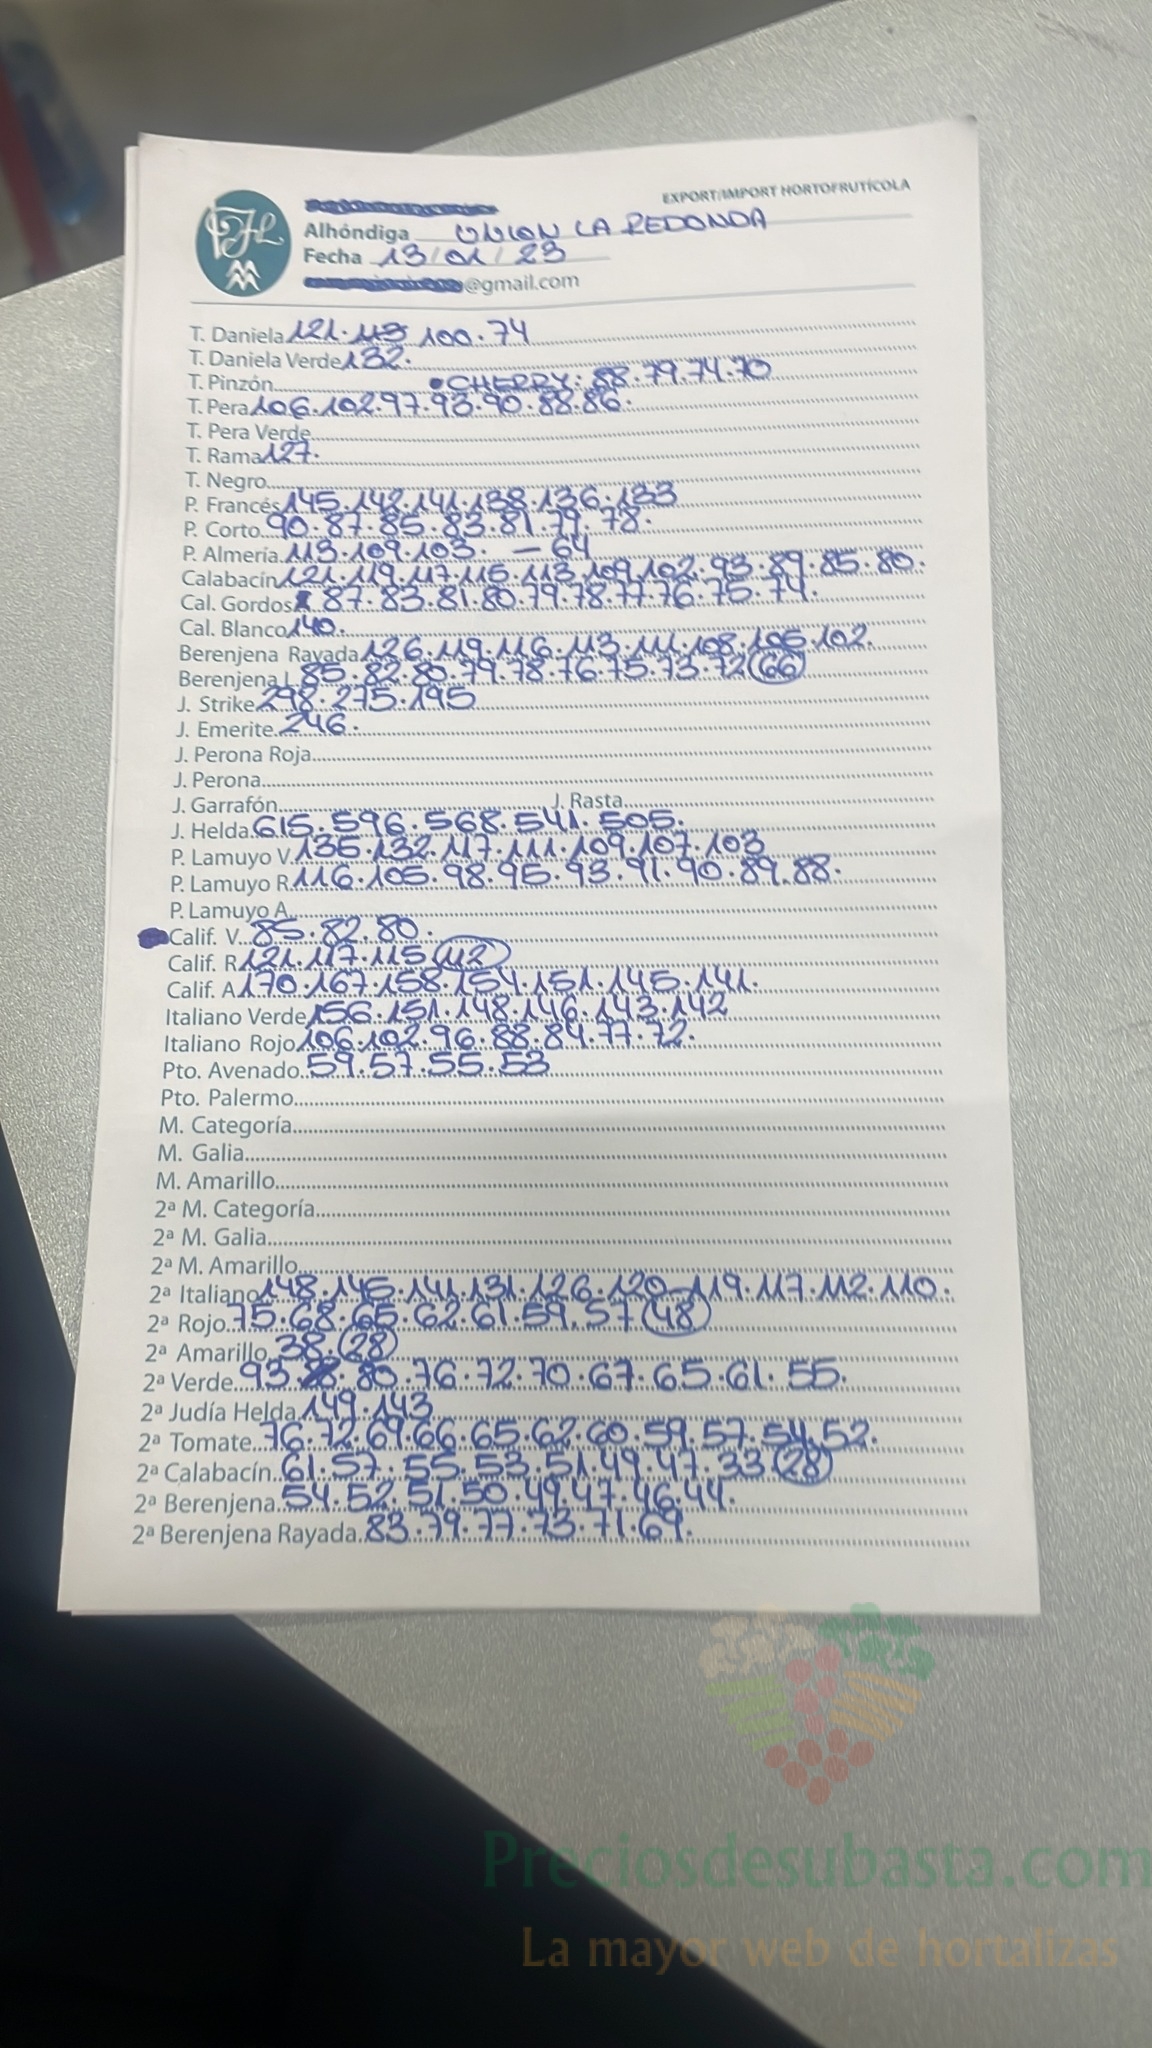 EXPORT/IMPORT HORTOFRUTÍCOLA
Alhóndiga UNION LA REDONDA
Fecha 13/01/23
@gmail.com
T. Daniela 121.113 100.74
T. Daniela Verde 132.
T. Pinzón •CHERRY: 88.79.74.70
T. Pera 106.102.97.93.90.88.86.
T. Pera Verde
T. Rama 127.
T. Negro
P. Francés 145.142.141.138.136.133
P. Corto 90.87.85.83.81.79.78.
P. Almería 113.109.103. - 64
Calabacín 121.119.117.115.113.109.102.93.89.85.80.
Cal. Gordos 87.83.81.80.79.78.77.76.75.74.
Cal. Blanco 140.
Berenjena Rayada 126.119.116.113.111.108.105.102.
Berenjena L. 85.82.80.79.78.76.75.73.72 (66)
J. Strike 298.275.195
J. Emerite 246.
J. Perona Roja
J. Perona
J. Garrafón J. Rasta
J. Helda 615.596.568.541.505.
P. Lamuyo V. 135.132.117.111.109.107.103
P. Lamuyo R. 116.105.98.95.93.91.90.89.88.
P. Lamuyo A.
Calif. V. 85.82.80.
Calif. R 121.117.115 (112)
Calif. A 170.167.158.154.151.145.141.
Italiano Verde 156.151.148.146.143.142
Italiano Rojo 106.102.96.88.84.77.72.
Pto. Avenado 59.57.55.53
Pto. Palermo
M. Categoría
M. Galia
M. Amarillo
2ª M. Categoría
2ª M. Galia
2ª M. Amarillo
2ª Italiano 148.145.141.131.126.120-119.117.112.110.
2ª Rojo 75.68.65.62.61.59.57 (48)
2ª Amarillo 38. (28)
2ª Verde 93. 80.76.72.70.67.65.61.55.
2ª Judía Helda 149.143
2ª Tomate 76.72.69.66.65.62.60.59.57.54.52.
2ª Calabacín 61.57.55.53.51.49.47.33 (28)
2ª Berenjena 54.52.51.50.49.47.46.44.
2ª Berenjena Rayada 83.79.77.73.71.69.
Preciosdesubasta.com
La mayor web de hortalizas